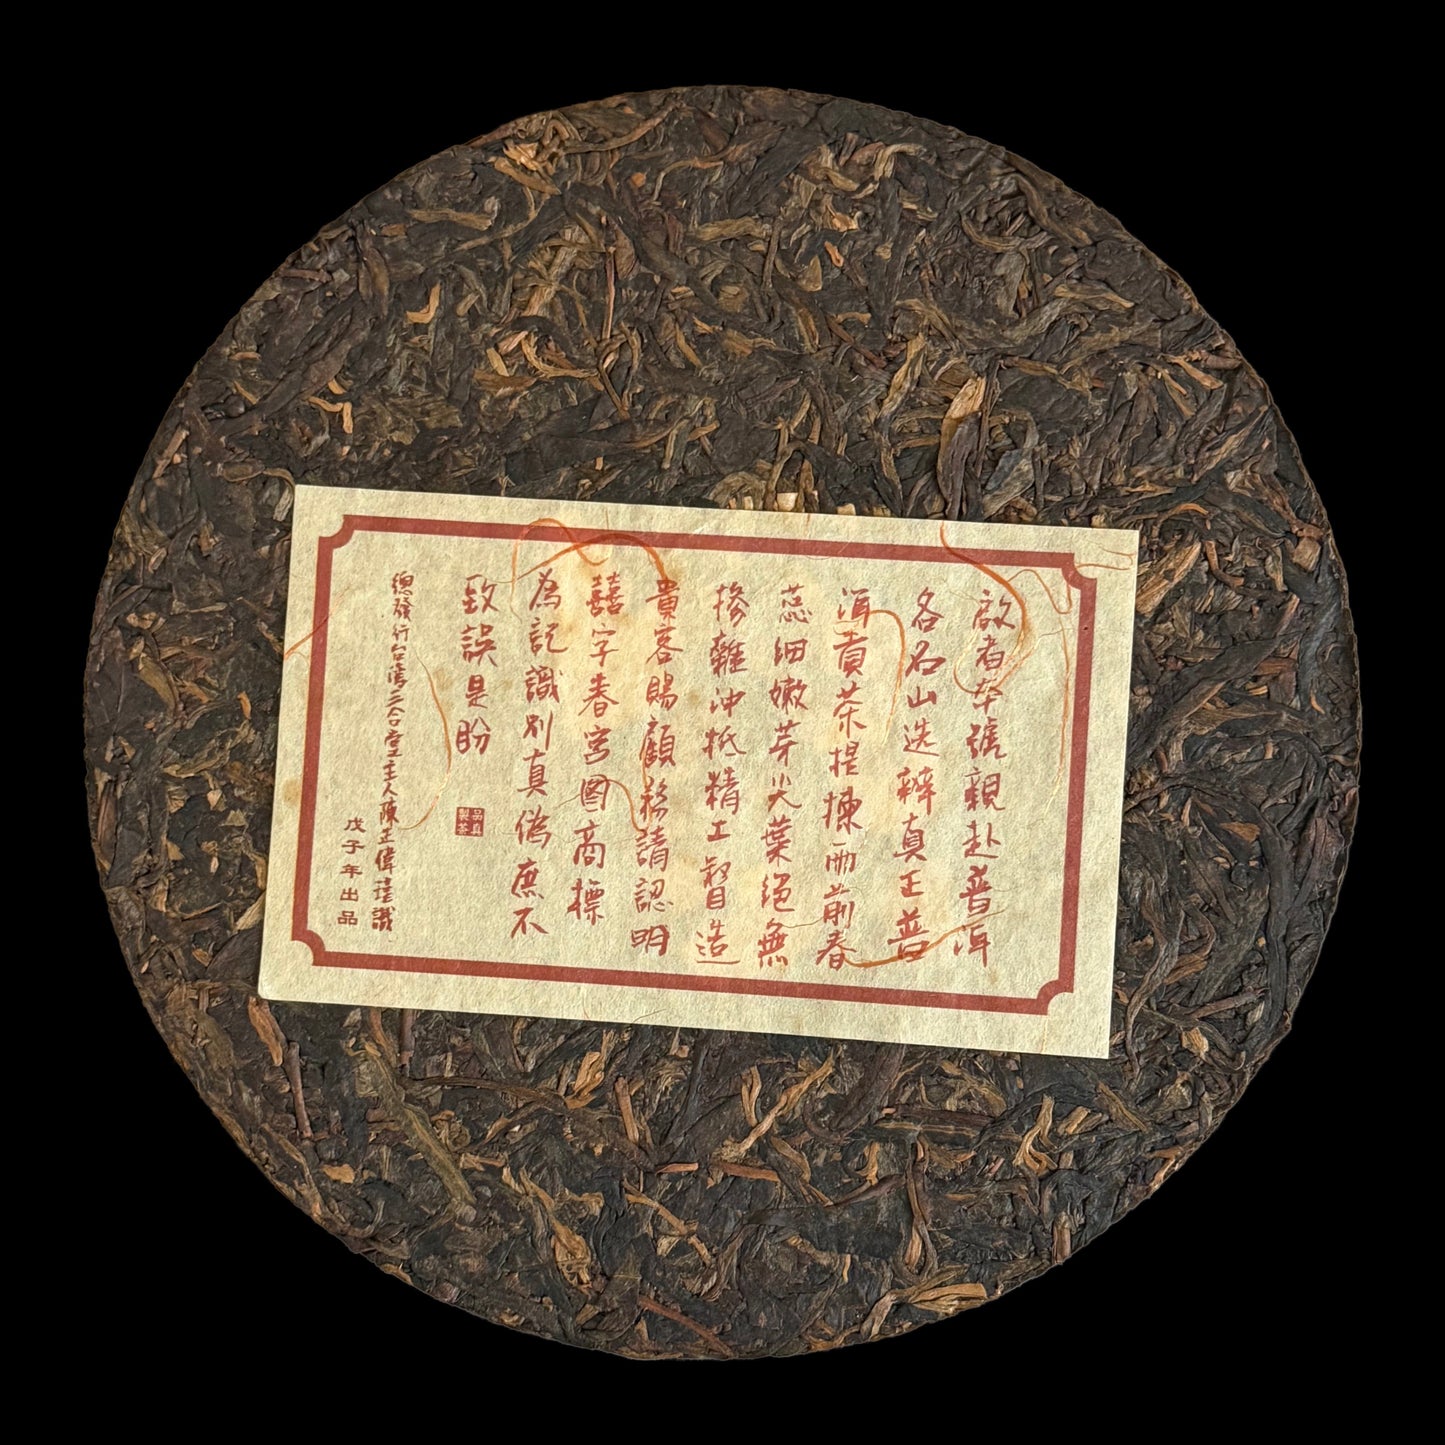 啟者本號親赴普洱
各名山选辦真正普
洱貢茶提揀雨前春
蕊細嫩芽尖葉絕無
摻雜沖抵精工督造
貴客賜顧務請認明
囍字春宮圖商標
為記識別真偽庶不
致誤是盼
品真製茶
總發行台灣三合堂主人陳正偉謹識
戊子年出品